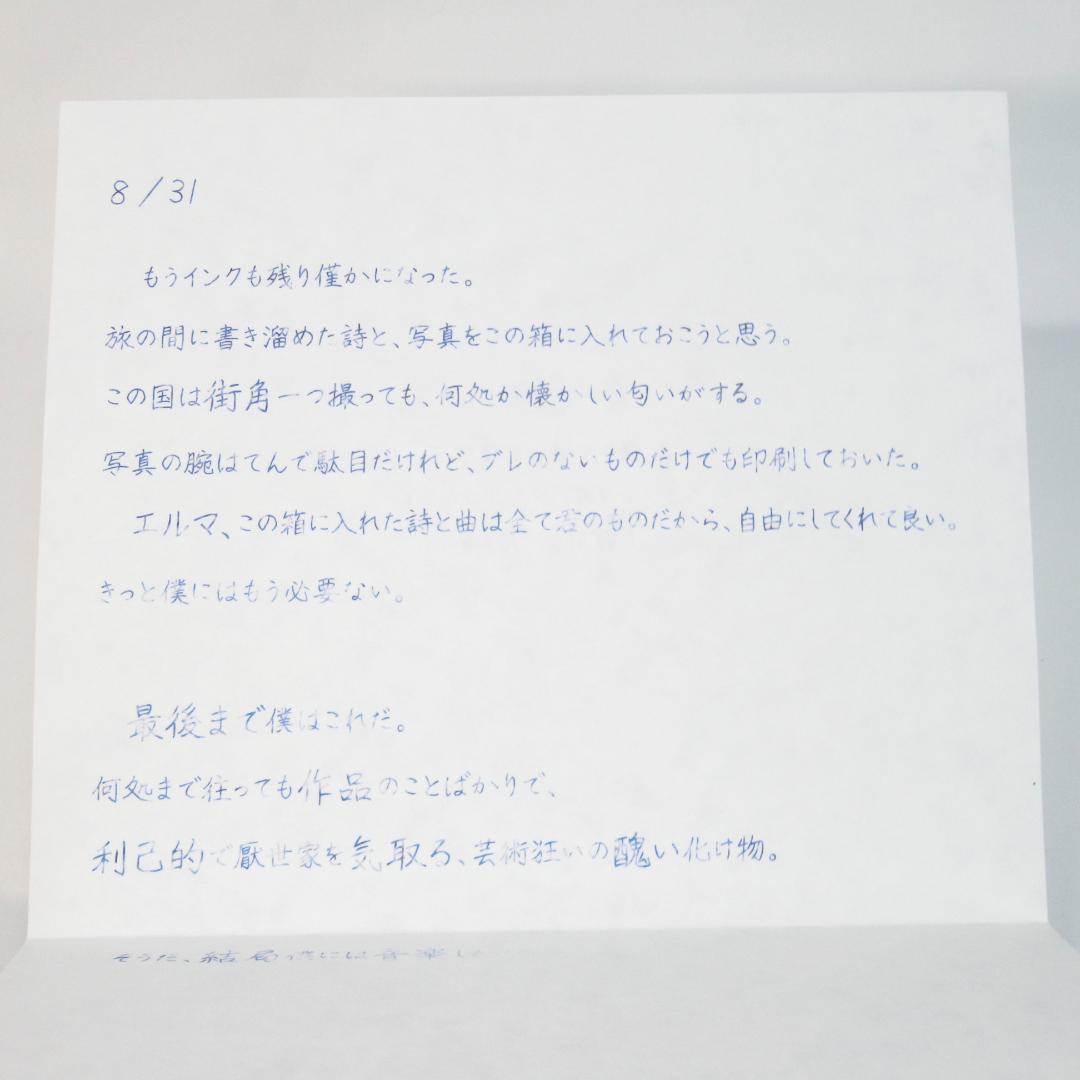 8/31
もうインクも残り僅かになった。
旅の間に書き溜めた詩と、写真をこの箱に入れておこうと思う。
この国は街角一つ撮っても、何処か懐かしい匂いがする。
写真の腕はてんで駄目だけれど、ブレのないものだけでも印刷しておいた。
エルマ、この箱に入れた詩と曲は全て君のものだから、自由にしてくれて良い。
きっと僕にはもう必要ない。
最後まで僕はこれだ。
何処まで往っても作品のことばかりで、
利己的で厭世家を気取る、芸術狂いの醜い化け物。
そうだ、結局僕には音楽し